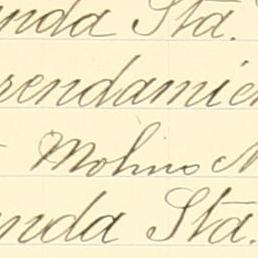 nda Sta.
rendamien
Mohno N
nda Sta.